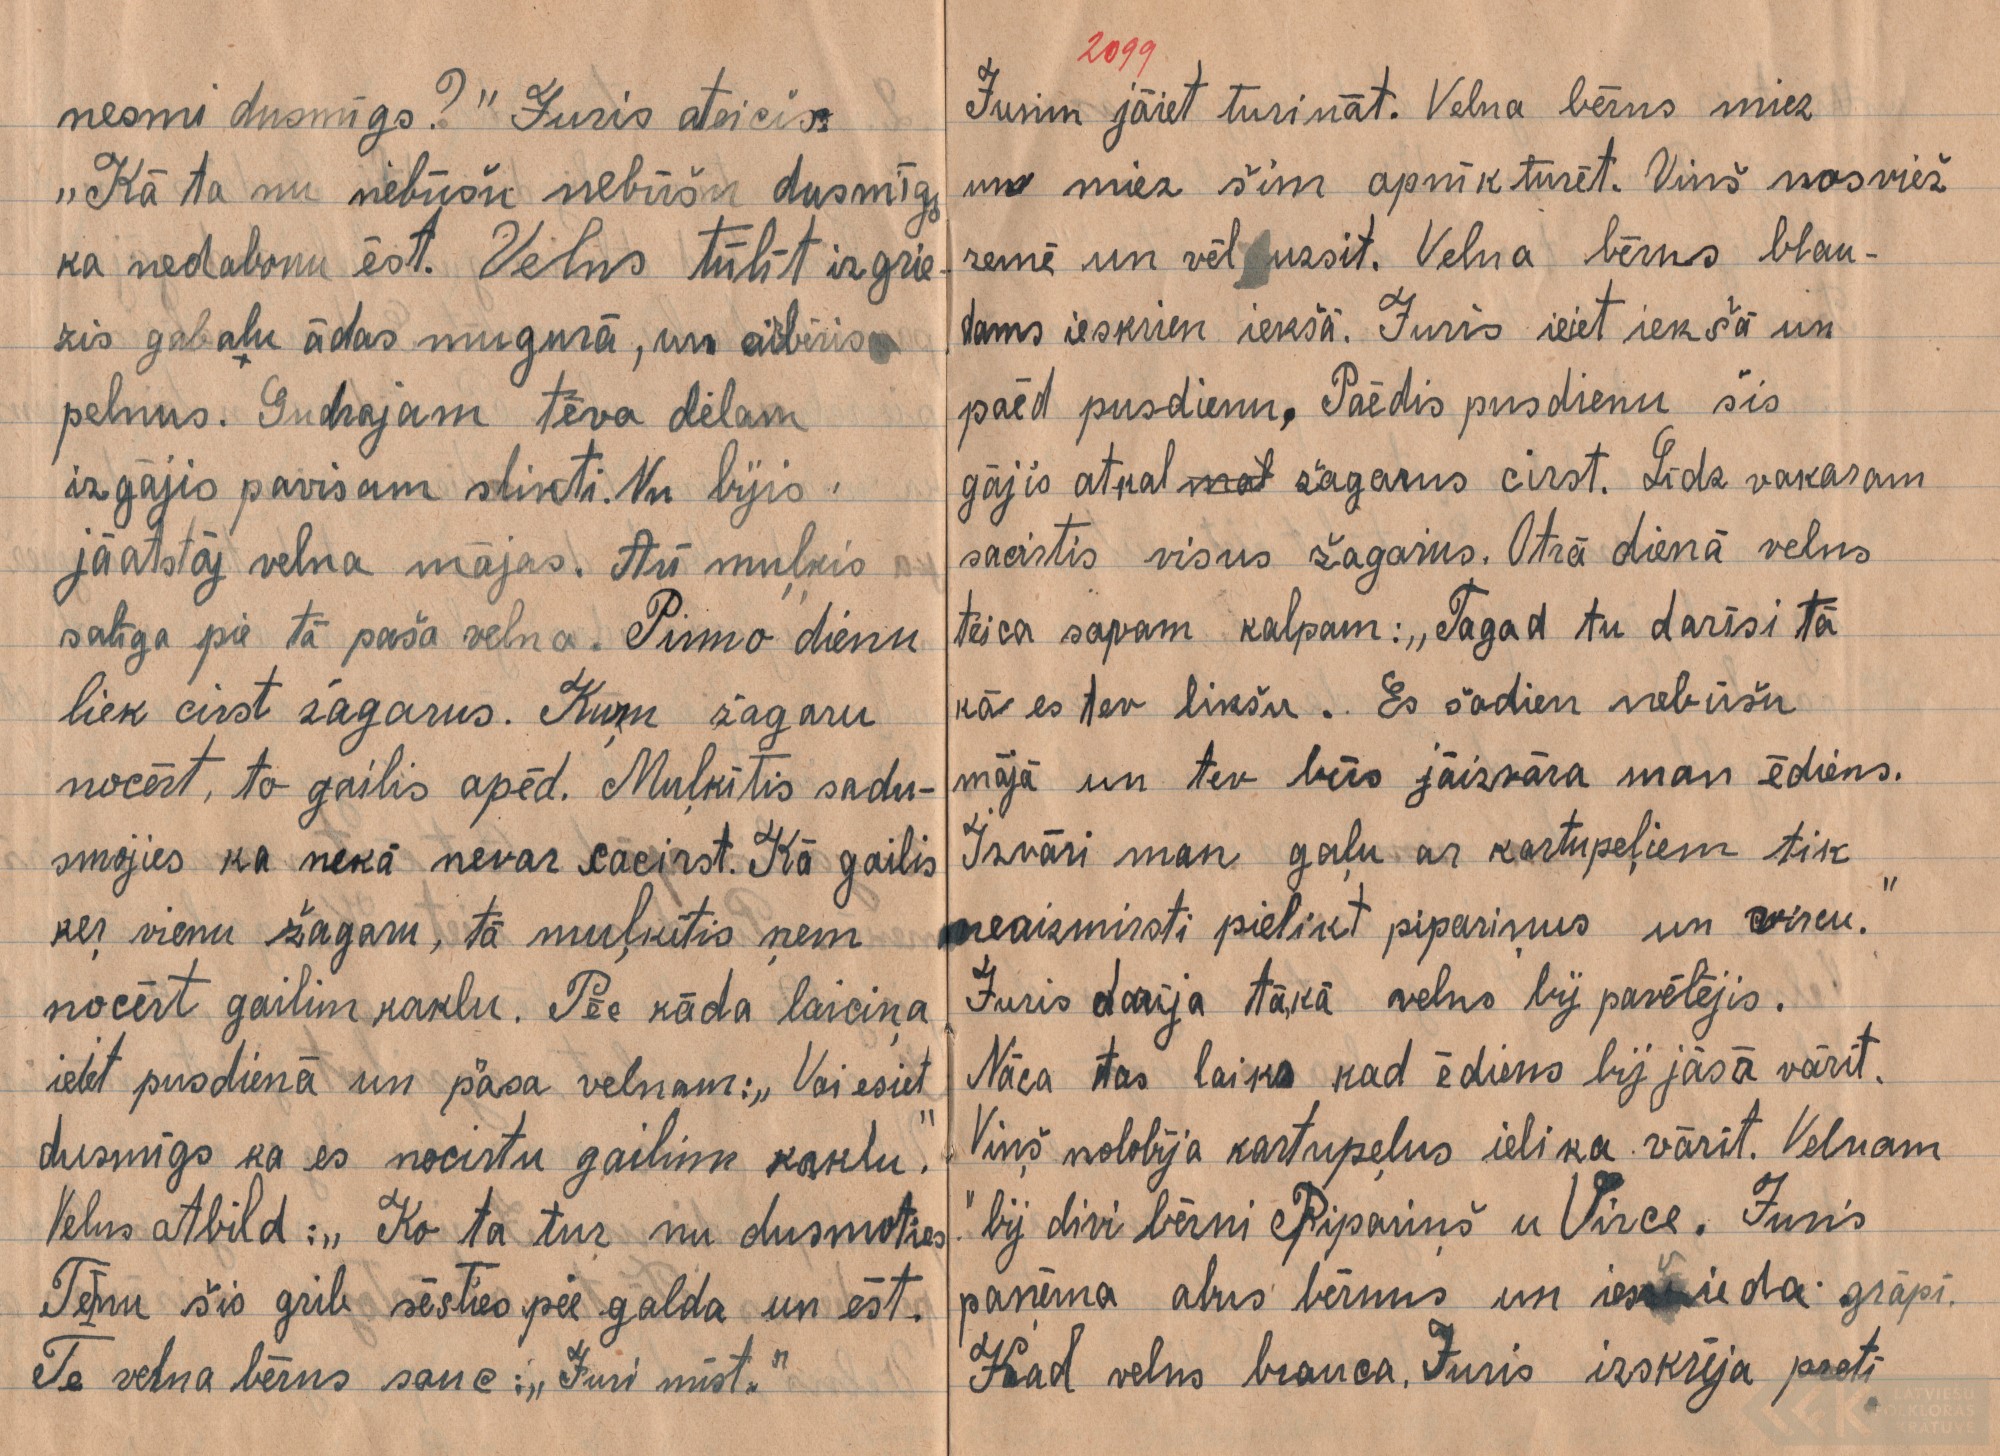 nesmi dusmīgs?" Juris ateicis:
„Kā ta nu nebūšu nebūšu dusmīgs
ka nedabonu ēst. Velns tūlīt izgrie-
zis gabalu ādas mugurā, un aizbēris
pelnus. Gudrajam tēva dēlam
izgājis pavisam slikti. Nu bijis
jāatstāj velna mājas. Aŗī muļķis
salīga pie tā paša velna. Pirmo dienu
liek cirst žagarus. Kuŗu žagaru
nocērt, to gailis apēd. Muļķītis sadu-
smojies ka nekā nevar sacirst. Kā gailis
ķeŗ vienu žagaru, tā muļķītis ņem
nocērt gailim kaklu. Pēc kāda laiciņa
ieiet pusdienā un pāsa velnam:„ Vai esiet
dusmīgs ka es nocirtu gailim kaklu."
Velns atbild:„ Ko ta tur nu dusmoties.
Tēnu šis grib sēsties pie galda un ēst.
Te velna bērns sauc:„ Juri mist."
2099
Jurim jāiet turināt. Velna bērns miez
un miez šim apnīk turēt. Viņš nosviež
zemē un vēl uzsit. Velna bērns blau-
dams ieskrien iekšā. Juris ieiet iekšā un
paēd pusdienu. Paēdis pusdienu šis
gājis atkal žagarus cirst. Līdz vakaram
sacirtis visus žagarus. Otrā dienā velns
teica savam kalpam:„Tagad tu darīsi tā
kā es tev likšu. Es šodien nebūšu
mājā un tev būs jāizvāra man ēdiens.
Izvāri man gaļu ar kartupeļiem tik
neaizmirsti pielikt pipariņus un virci."
Juris darīja tā,kā velns bij pavēlējis.
Nāca tas laiks kad ēdiens bij jāsā vārīt.
Viņš nolobīja kartupeļus ielika vārīt. Velnam
bij divi bērni Pipariņš u Virce. Juris
paņēma abus bērnus un iesvieda grāpī.
Kad velns brauca, Juris izskrēja pretī
LATVIEŠU
FOLKLORAS
KRĀTUVE